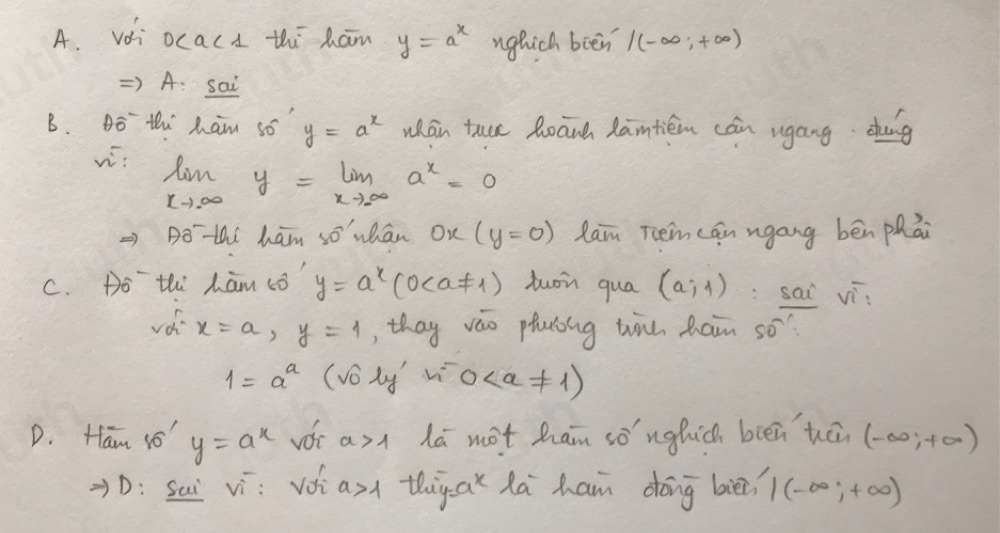 A. Với 0<a<1 thì hàm y = aˣ nghịch biến /(-∞;+∞)
=> A: sai
B. Đồ thị hàm số y = aˣ nhận trục hoành làm tiệm cận ngang. đúng
vì: lim y = lim aˣ = 0
x→-∞ x→-∞
=> Đồ thị hàm số nhận Ox (y=0) làm tiệm cận ngang bên phải
C. Đồ thị hàm số y = aˣ (0<a≠1) luôn qua (a;1) : sai vì:
với x = a, y = 1, thay vào phương trình hàm số:
1 = aᵃ (vô lý vì 0<a≠1)
D. Hàm số y = aˣ với a>1 là một hàm số nghịch biến trên (-∞;+∞)
=> D: sai vì: với a>1 thì y=aˣ là hàm đồng biến /(-∞;+∞)